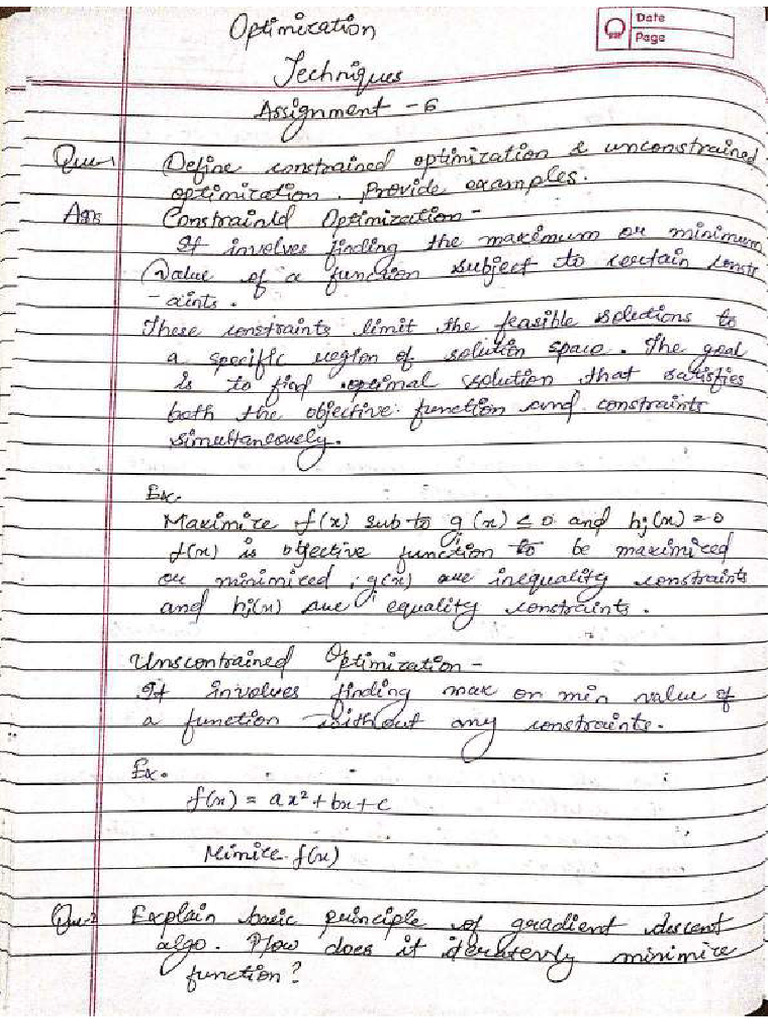 Optimization
Date
Page
Techniques
Assignment - 6
Que-1 Define constrained optimization & unconstrained
optimization. Provide examples.
Ans Constraintd Optimization -
It involves finding the maximum or minimum
value of a function subject to certain constr
-aints.
These constraints limit the feasible solutions to
a specific region of solution space. The goal
is to find optimal solution that satisfies
both the objective function and constraints
simultaneously.
Ex.
Maximize f(x) sub to g(x) ≤ 0 and hj(x) = 0
f(x) is objective function to be maximized
or minimized, g(x) are inequality constraints
and hj(x) are equality constraints.
Unscontrained Optimization -
It involves finding max or min value of
a function without any constraints.
Ex.
f(x) = ax² + bx + c
Mimize f(x)
Que-2 Explain basic principle of gradient descent
algo. How does it iteratevly minimize
function?